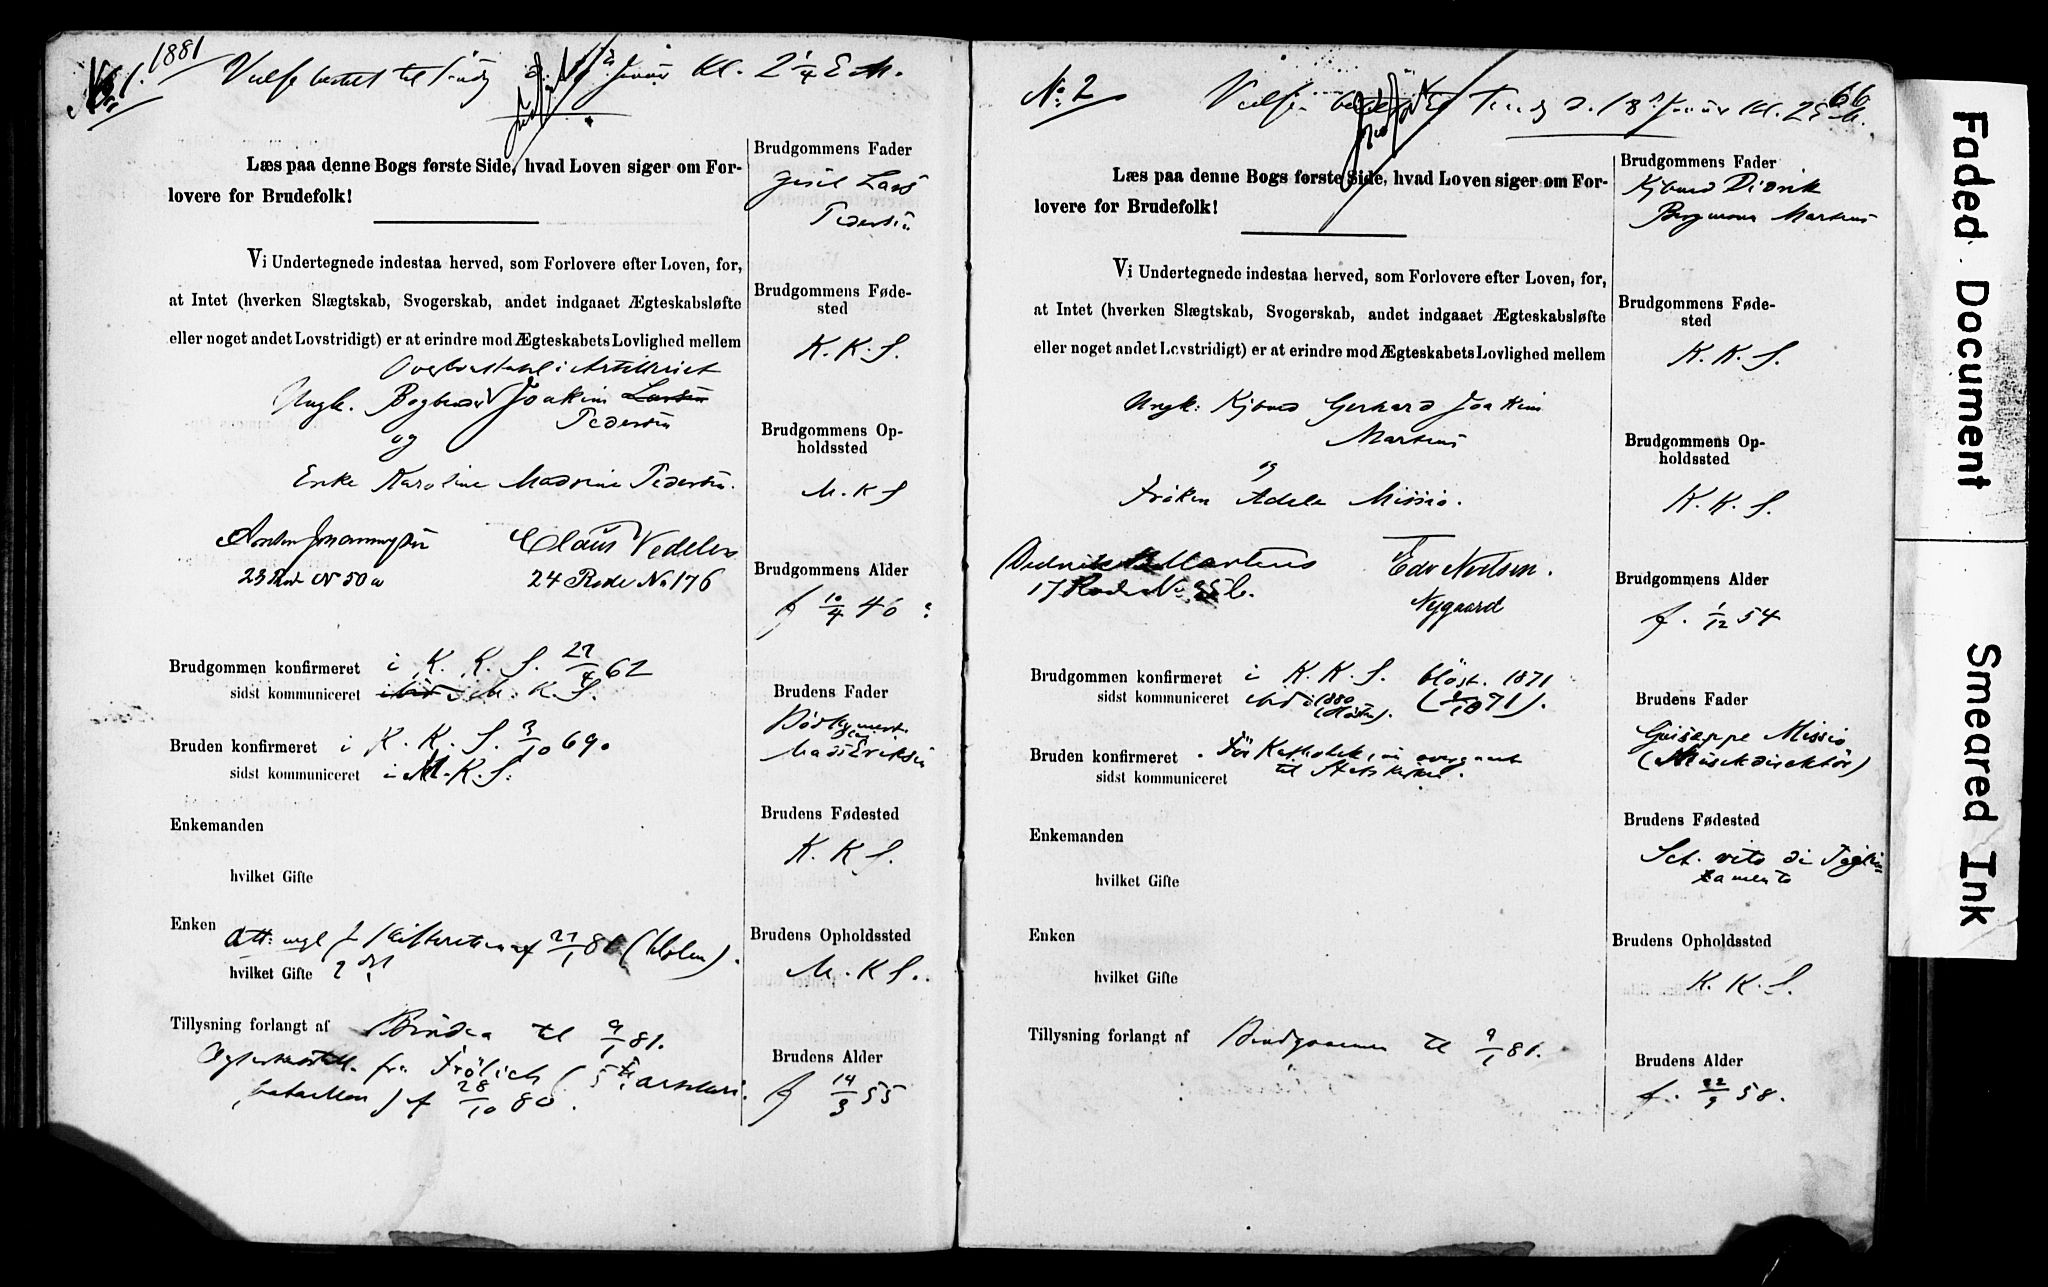 No 1. 1881
Vielse bestilt til d. Januar Kl. 2 1/4 E.M.
Læs paa denne Bogs første Side, hvad Loven siger om For-
lovere for Brudefolk!
Vi Undertegnede indestaa herved, som Forlovere efter Loven, for,
at Intet (hverken Slægtskab, Svogerskab, andet indgaaet Ægteskabsløfte
eller noget andet Lovstridigt) er at erindre mod Ægteskabets Lovlighed mellem
i Artilleriet
Ungk. Joakim Larsen
Pedersen
og
Enke Karoline Madsine Pedersen.
Claus Vedeler
23 Rode N 50a 24 Rode No 176
Brudgommen konfirmeret i K. K. S. 27/4 62
sidst kommuniceret i M. K. S.
Bruden konfirmeret i K. K. S. 3/10 69.
sidst kommuniceret i M. K. S.
Enkemanden
hvilket Gifte
Enken Att: 27/1 81 (Holm).
hvilket Gifte 2det
Tillysning forlangt af Bruden til 9/1 81.
fra Frölich (5te
bataillon) af 28/10 80.
Brudgommens Fader
Lars
Pedersen
Brudgommens Føde-
sted
K. K. S.
Brudgommens Op-
holdssted
M. K S
Brudgommens Alder
f 10/4 46
Brudens Fader
Mads Eriksen
Brudens Fødested
K. K S.
Brudens Opholdssted
M. K S.
Brudens Alder
f 14/3 55
No 2 66
Vielse bestilt til Tirsdg d. 18 Januar Kl. 2 E. M.
Læs paa denne Bogs første Side, hvad Loven siger om For-
lovere for Brudefolk!
Vi Undertegnede indestaa herved, som Forlovere efter Loven, for,
at Intet (hverken Slægtskab, Svogerskab, andet indgaaet Ægteskabsløfte
eller noget andet Lovstridigt) er at erindre mod Ægteskabets Lovlighed mellem
Ungk: Kjbmd Gerhard Joakim
Martens
og
Frøken Adele Missio.
Didrik B Martens Edv Nertsen.
17 Rode No 95 b. Nygaard
Brudgommen konfirmeret i K. K. S. Høst. 1871
sidst kommuniceret 1880 (Høsten). (1/10 71).
Bruden konfirmeret. Før Katholek, nu overgaaet
sidst kommuniceret til Statskirken.
Enkemanden
hvilket Gifte
Enken
hvilket Gifte
Tillysning forlangt af Brudgommen til 9/1 81.
Brudgommens Fader
Kjbmd Didrik
Borgmann Martens
Brudgommens Føde-
sted
K. K. S.
Brudgommens Op-
holdssted
K. K. S.
Brudgommens Alder
f. 1/12 54
Brudens Fader
Guiseppe Missio
(Musikdirektør)
Brudens Fødested
Sct. vito di Tagli=
amento
Brudens Opholdssted
K. K. S.
Brudens Alder
f. 22/9 58.
Faded Document
Smeared Ink